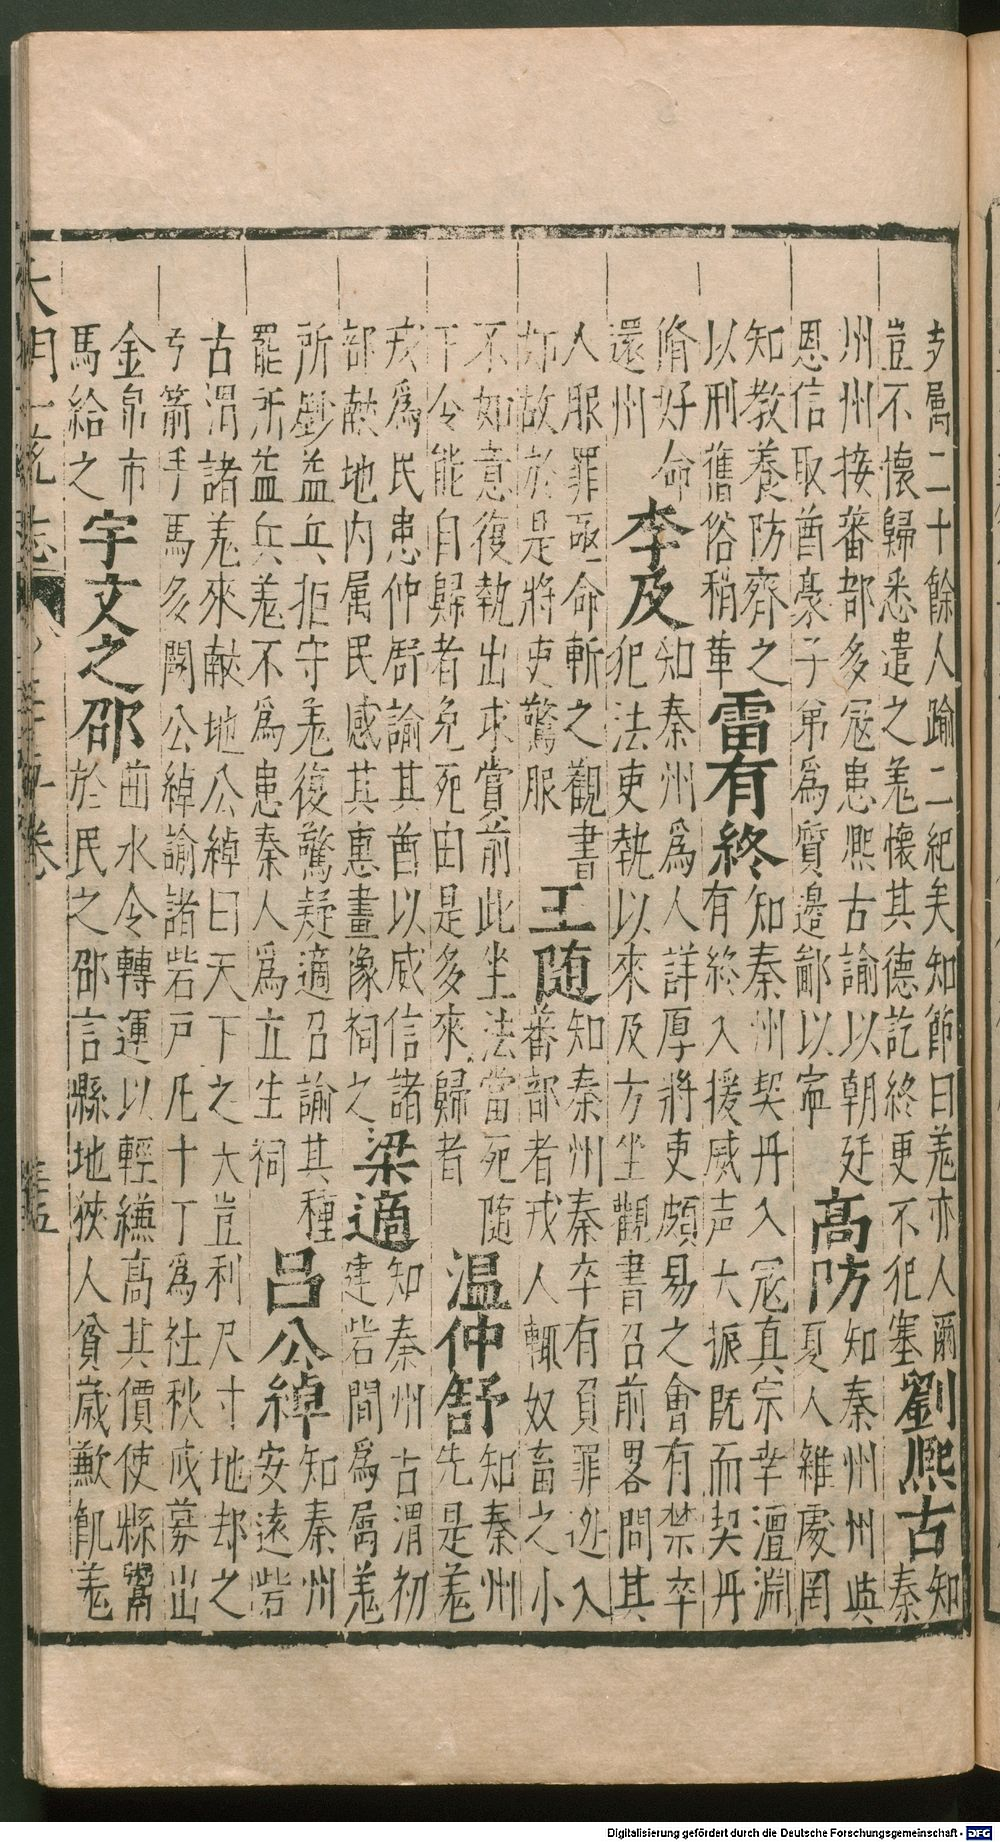 支属二十餘人踰二紀矣知節曰羗亦人爾
豈不懷歸悉遣之羗懷其德訖終更不犯塞
劉熙古
知
秦
州州接蕃部多冦患熙古諭以朝廷
恩信取酋豪子弟為質邊鄙以寧
高防
知秦州州與
夏人雜處罔
知教養防齊之
以刑舊俗稍革
雷有終
知秦州契丹入冦真宗幸澶淵
有終入援威声大振既而契丹
脩好命
還州
李及
知秦州為人詳厚將吏頗易之會有禁卒
犯法吏執以來及方坐觀書召前畧問其
人服罪亟命斬之觀書
如故於是將吏驚服
王随
知秦州秦卒有負罪逃入
蕃部者戎人輒奴畜之小
不如意復執出求賞前此坐法當死随
下令能自歸者免死由是多來歸者
温仲舒
知秦州
先是羗
戎為民患仲舒諭其酋以威信諸
部献地内属民感其惠畫像祠之
梁適
知秦州古渭初
建砦間為属羗
所剽益兵拒守羗復驚疑適召諭其種
罷所益兵羗不為患秦人為立生祠
吕公綽
知秦州
安遠砦
古渭諸羗來献地公綽曰天下之大豈利尺寸地却之
弓箭手馬多闕公綽諭諸砦戸凡十丁為社秋成募出
金帛市
馬給之
宇文之邵
曲水令轉運以輕縑高其價使縣鬻
於民之邵言縣地狹人貧歲歉飢羗
Digitalisierung gefördert durch die Deutsche Forschungsgemeinschaft - DFG